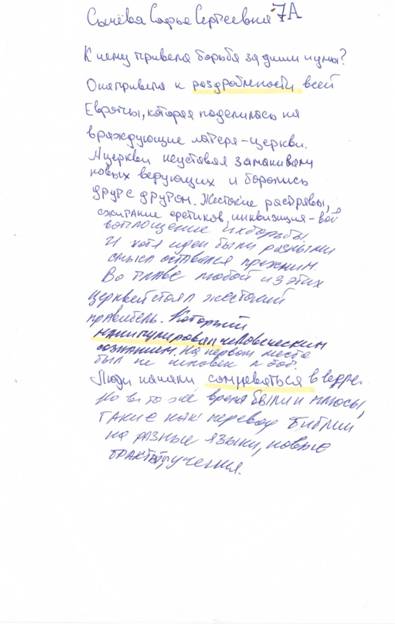 Сычёва Софья Сергеевна 7А
К чему привела борьба за души и умы?
Она привела к раздробленности всей
Европы, которая поделилась на
враждующие лагеря-церкви.
А церкви неуставая заманивали
новых верующих и боролись
друг с другом. Жестокие расправы,
сжигание еретиков, инквизиция - вот
воплощение их борьбы
И хотя идеи были разными
смысл оставался прежним.
Во главе любой из этих
церквей стоял жестокий
правитель. Который
манипулировал человеческим
сознанием. На первом месте
был не человек а бог.
Люди начали сомневаться в верре.
Но в то же время были и плюсы,
такие как перевод Библии
на разные языки, новые
учения.